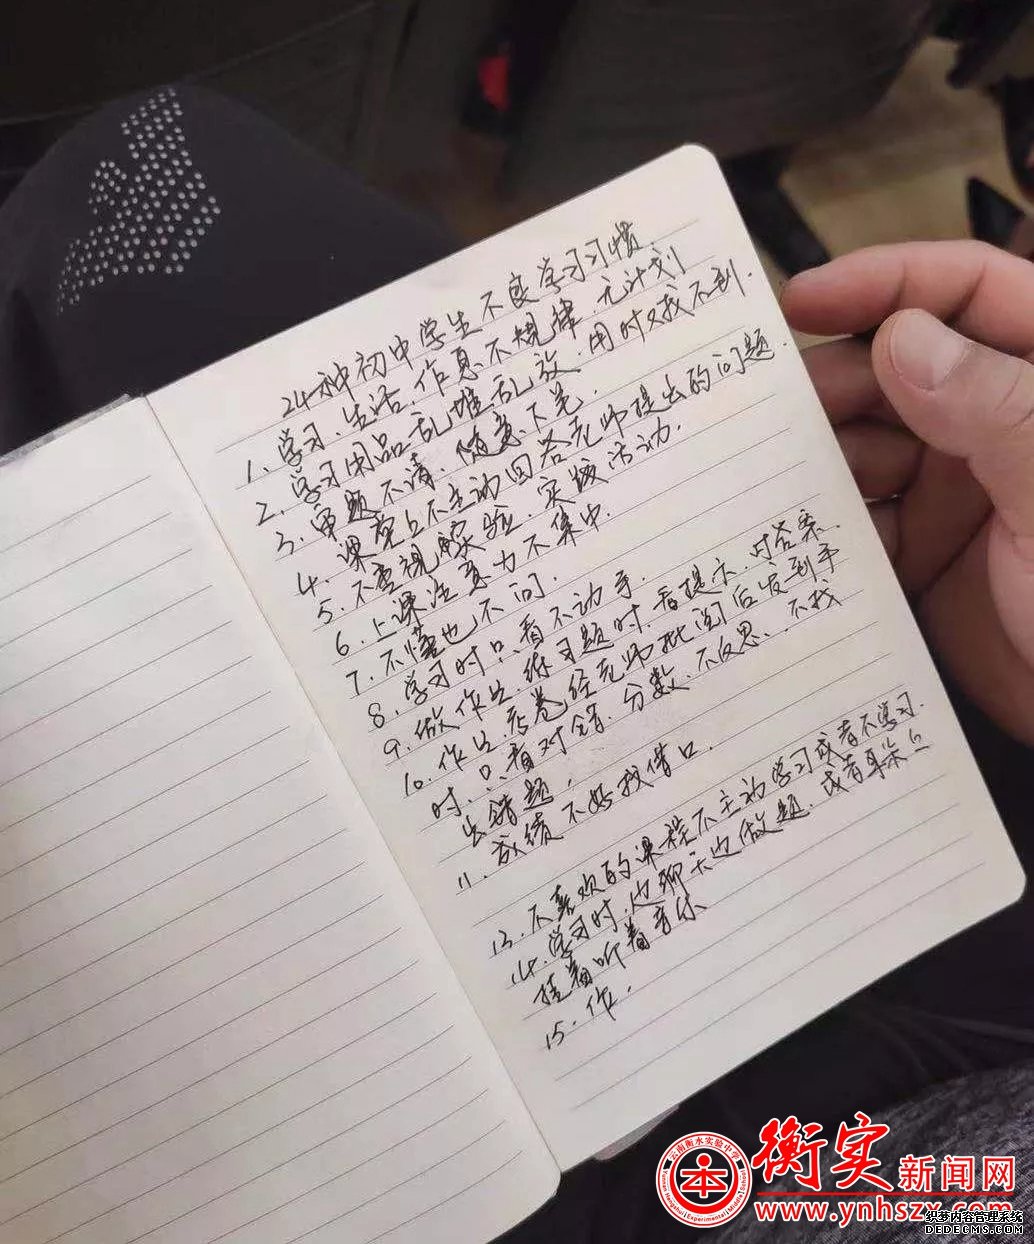 24种初中学生不良学习习惯.
1、学习、生活、作息不规律、无计划
2、学习用品乱堆乱放、用时又找不到.
3、审题不清、随意下笔.
4、课堂上不主动回答老师提出的问题.
5、不重视实验、实践活动.
6、上课注意力不集中.
7、不懂也不问.
8、学习时只看不动手.
9、做作业、练习题时、看提示、对答案.
10、作业、考卷经老师批阅后发到手
时、只看对错、分数、不反思、不找
出错题;
11、成绩不好找借口.
13、不喜欢的课程不主动学习或者不学习.
14、学习时、边聊天边做题、或者耳朵上
挂着听着音乐
15、作.
云南衡水实验中学
本
Yunnan Hengshui Experimental Middle School
衡实新闻网
www.ynhszx.com
织梦内容管理系统
DEDECMS.COM